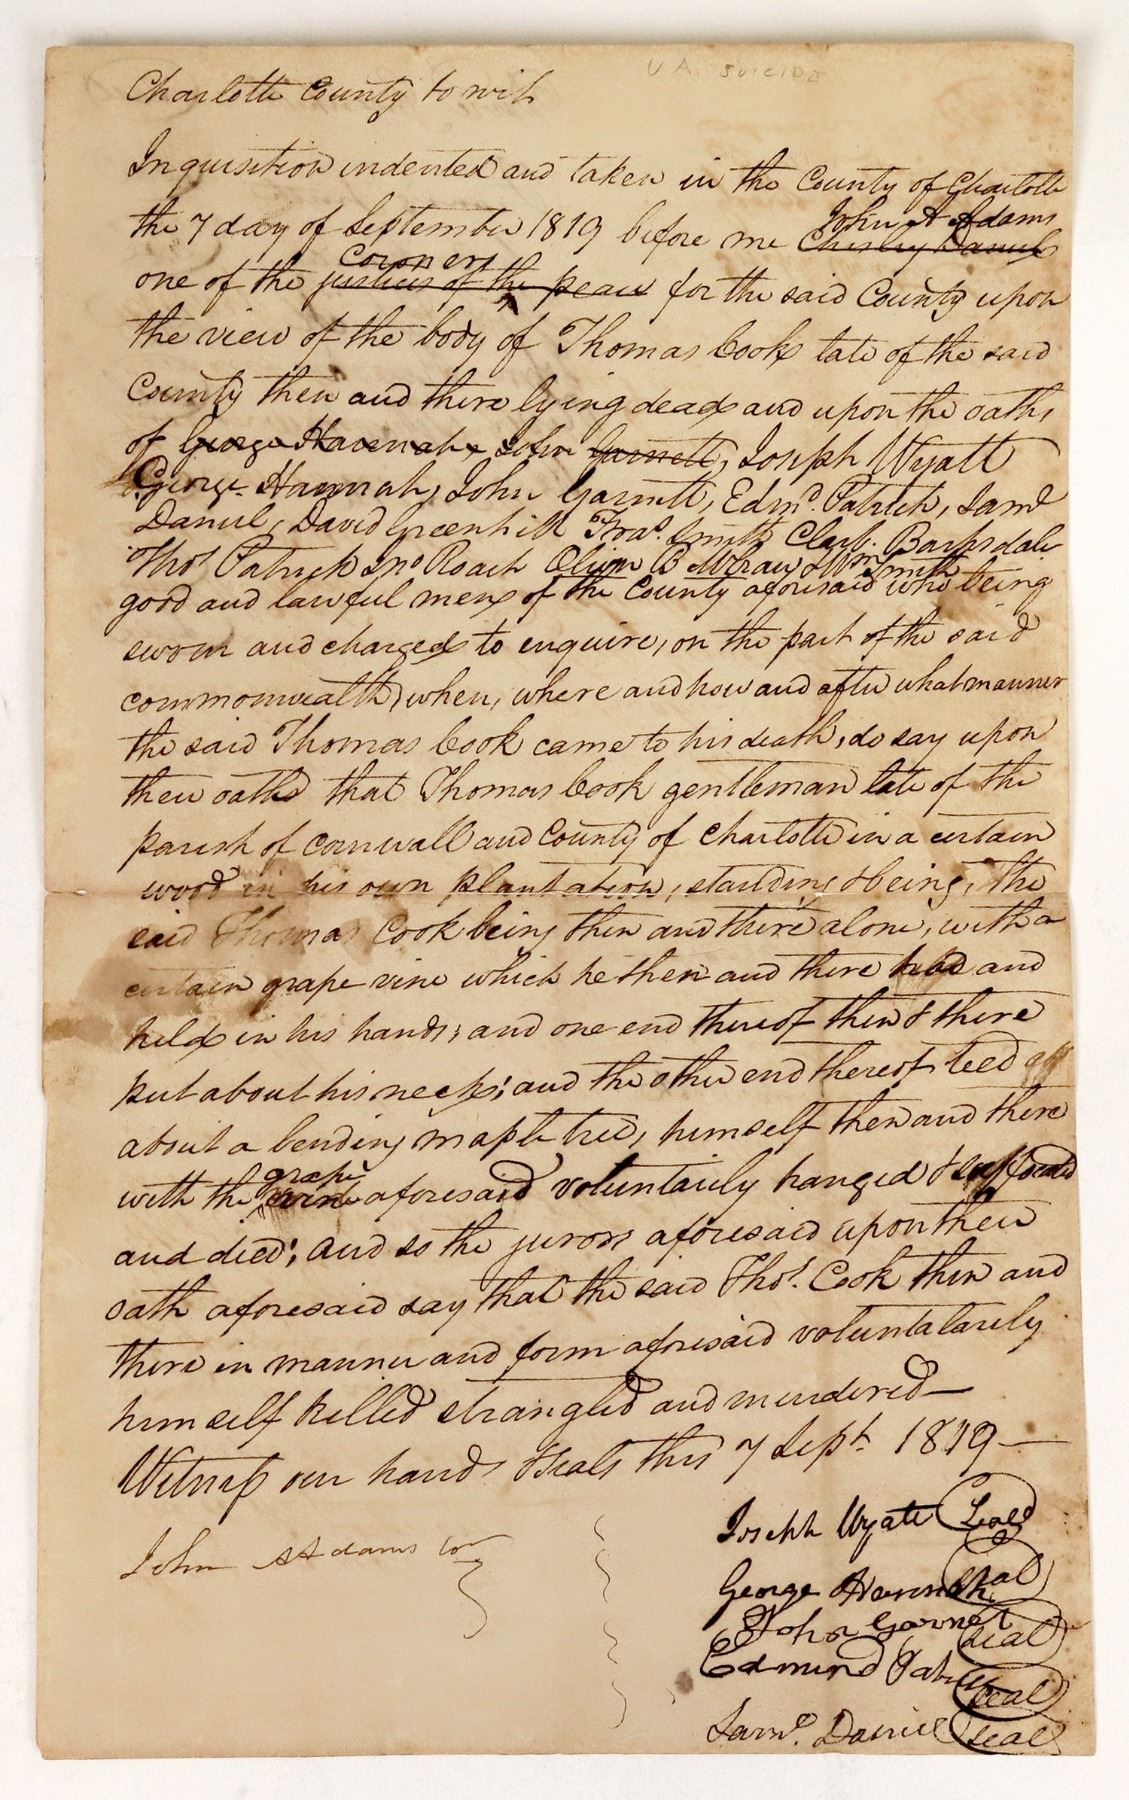 VA SUICIDE
Charlotte County to wit
Inquisition indented and taken in the County of Charlotte
John A Adams
the 7 day of September 1819 before me Chesley Daniel
Coroners
one of the justices of the peace for the said County upon
the view of the body of Thomas Cook late of the said
County then and there lying dead and upon the oaths
of George Hannah, John Garnett, Joseph Wyatt
George Hannah, John Garnett, Edmd. Patrick, Saml
Daniel, David Greenhill Fras. Smith Clab. Barksdale
Thos Patrick Jno Roach & Wm Smith
good and lawful men of the County aforesaid who being
sworn and charged to enquire, on the part of the said
commonwealth, when, where and how and after what manner
the said Thomas Cook came to his death, do say upon
their oaths that Thomas Cook gentleman late of the
parish of cornwall and County of Charlotte in a certain
wood in his own plantation, standing & being, the
said Thomas Cook being then and there alone, with a
certain grape vine which he then and there had and
held in his hands; and one end thereof then & there
put about his neck; and the other end thereof teed
about a bending maple tree, himself then and there
grape
with the vine aforesaid voluntarily hanged & suffocated
and died; and so the jurors aforesaid upon their
oath aforesaid say that the said Thos. Cook then and
there in manner and form aforesaid voluntalarily
himself killed strangled and murdered—
Witness our hands & seals this 7 Sept. 1819—
Joseph Wyatt Seal
John A Adams Cor
George Hannah Seal
John Garnet seal
Edmund Patrick seal
Saml. Daniel seal